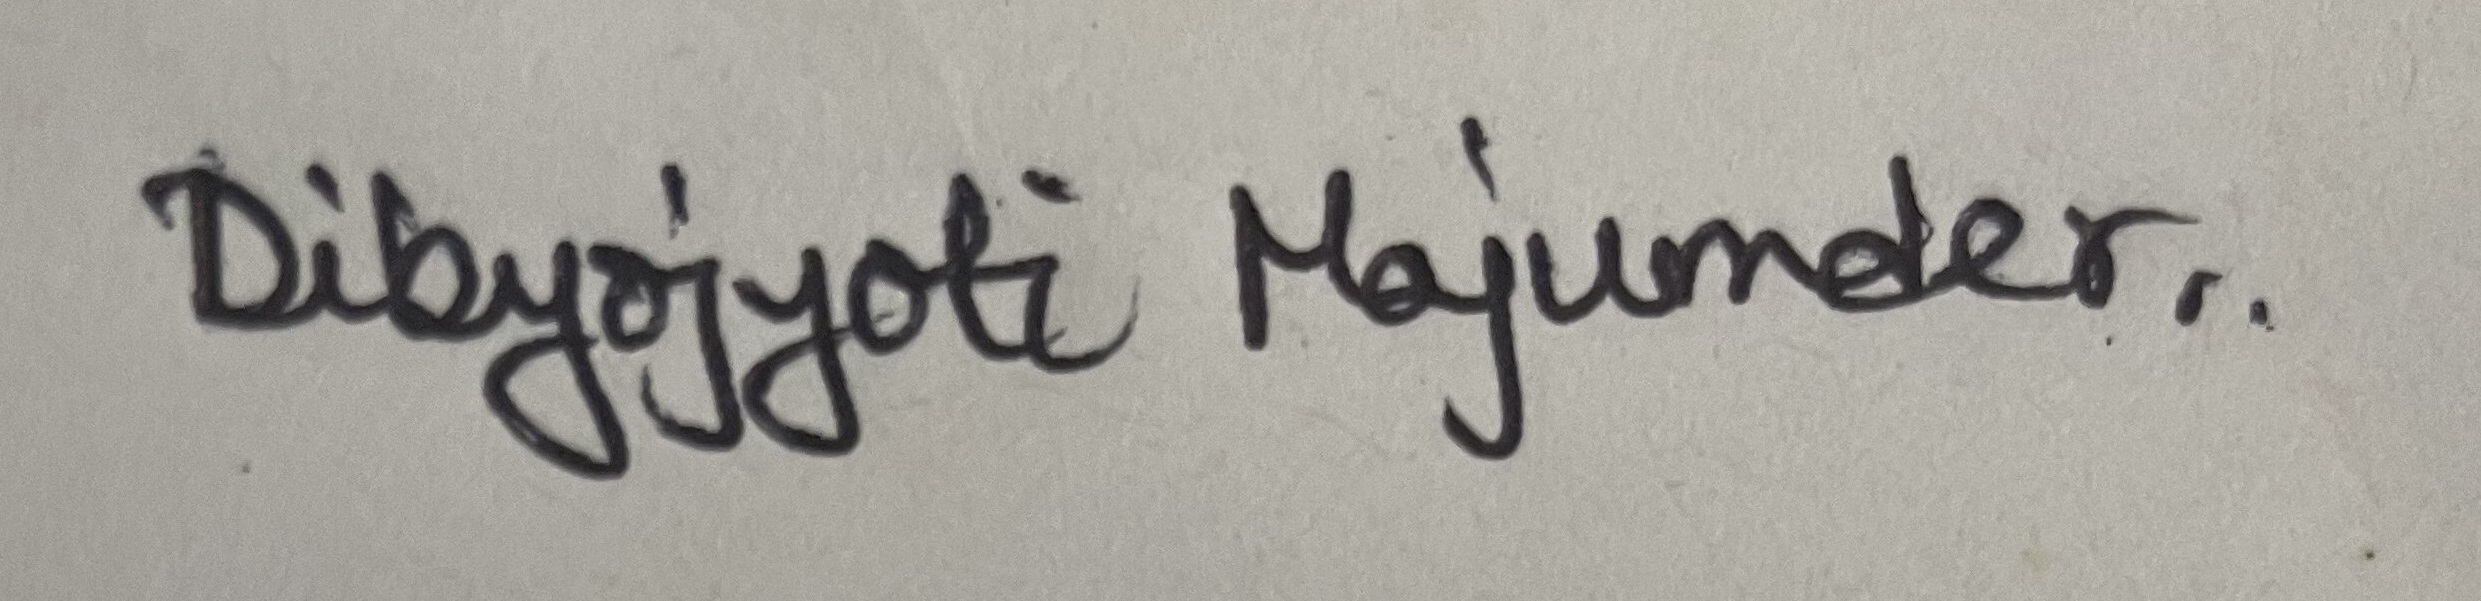 Dibyojyoti Majumder..